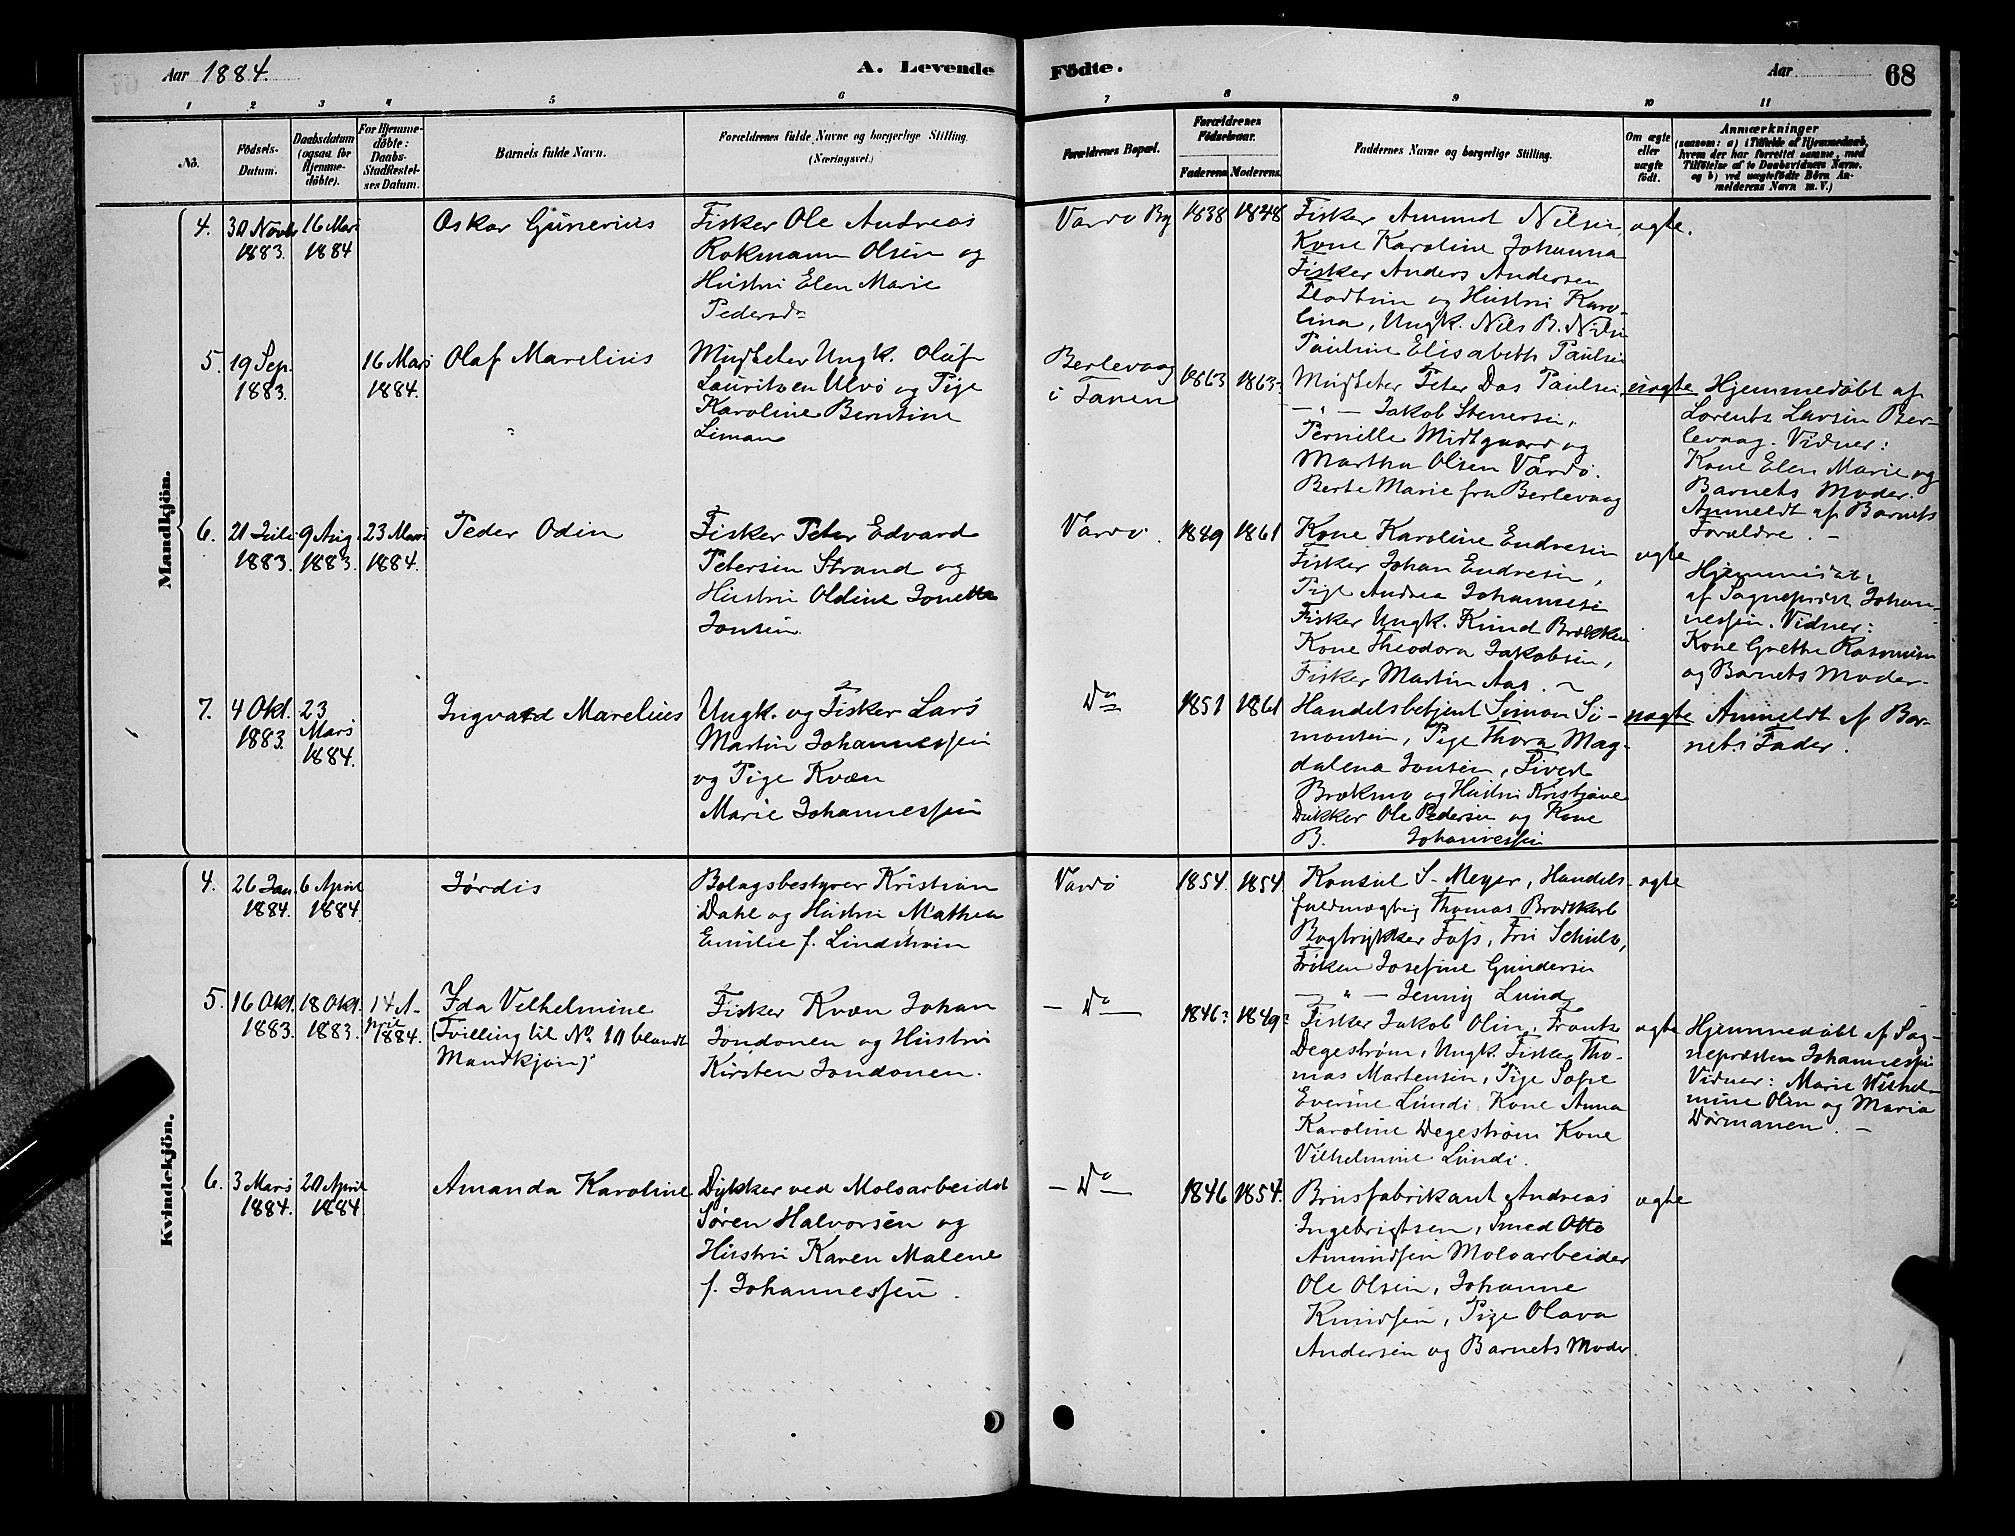 Aar 1884.
A. Levende
Födte.
Aar
68
1 2 3 4 5 6 7 8 9 10 11
No.
Födsels-
Datum.
Daabsdatum
(ogsaa for
Hjemme-
döbte).
For Hjemme-
döbte:
Daabs-
Stadfæstel-
ses Datum.
Barnets fulde Navn.
Forældrenes fulde Navne og borgerlige Stilling.
(Næringsvei.)
Forældrenes Bopæl.
Forældrenes
Födselsaar.
Faderens. Moderens.
Faddernes Navne og borgerlige Stilling.
Om ægte
eller
uægte
födt.
Anmærkninger
(saasom: a) i Tilfælde af Hjemmedaab,
hvem der har forrettet samme, med
Tilföielse af to Daabsvidners Navne.
og b) ved uægtefödte Börn An-
melderens Navn m. V.)
Mandkjön.
4.
30 Novbr
1883.
16 Mars
1884
Oskar Gunerius
Fisker Ole Andreas
Rokmann Olsen og
Hustru Elen Marie
Pedersdr
Vardø By
1838
1848
Fisker Amund Nilsen,
Kone Karoline Johanna
Fisker Anders Andersen
og Hustru Karo-
lina, Ungk. Nils B. Nilsen
Pauline Elisabeth Paulsen
ægte.
5.
19 Sep.
1883.
16 Mars
1884.
Olaf Marelius
Ungk. Oluf
Lauritsen Ulvø og Pige
Karoline Berntine
Liman
Berlevaag
i Tanen
1863
1863?
Peter Das Paulsen
— " — Jakob Stenersen,
Pernille Midtgaard og
Martha Olsen Vardø.
Berte Marie fra Berlevaag
uægte
Hjemmedøbt af
Lorents Larsen Ber-
levaag. Vidner:
Kone Elen Marie og
Barnets Moder.
Anmeldt af Barnets
Forældre. —
6.
21 Juli
1883.
9 Aug.
1883.
23 Mars
1884.
Peder Odin
Fisker Peter Edvard
Petersen Strand og
Hustru Oldine Jonette
Jonsen.
Vardø.
1849
1861
Kone Karoline Endresen
Fisker Johan Endresen,
Pige Andrea Johannesen
Fisker Ungk. Knud Brækken
Kone Theodora Jakobsen,
Fisker Martin Aas. —
ægte
Hjemmedøbt
af Sogneprest Johan-
nessen. Vidner:
Kone Grethe Rasmusen
og Barnets Moder.
7.
4 Okt.
1883.
23
Mars
1884.
Ingvald Marelius
Ungk. og Fisker Lars
Martin Johannessen
og Pige Kvæn
Marie Johannessen
Do
1851
1861
Handelsbetjent Simon Si-
monsen, Pige Thora Mag-
dalena Jonsen, Sivert
Brækmo og Hustru Kristjane
Dykker Ole Pedersen og Kone
B. Johannessen
uægte
Anmeldt af Bar-
nets Fader.
Kvindekjön.
4.
26 Jan.
1884.
6 April
1884
Jørdis
Bolagsbestyrer Kristian
Dahl og Hustru Mathea
Emilie f. Lindstrøm
Vardø
1854.
1854.
Konsul S. Meyer, Handels-
fuldmægtig Thomas Brodtkorb
Bogtrykker Foss, Fru Schulo,
Frøken Josefine Gundersen
— " — Jenny Lund
ægte
5.
16 Okt.
1883.
18 Okt.
1883.
14 A-
pril
1884.
Ida Velhelmine
(Tvilling til No. 10 blandt
Mandkjøn)
Fisker Kvæn Johan
Jondonen og Hustru
Kirsten Jondonen.
— Do —
1846?
1849?
Fisker Jakob Olsen, Frants
Degestrøm, Ungk. Fisker Tho-
mas Martensen, Pige Sofie
Everine Lundi, Kone Anna
Karoline Degestrøm Kone
Vilhelmine Lundi.
ægte
Hjemmedøbt af Sog-
nepræsten Johannessen
Vidner: Marie Wilhel-
mine Olsen og Maria
Dørmanen. —
6.
3 Mars
1884.
20 April
1884
Amanda Karoline
Dykker ved Moloarbeidet
Søren Halvorsen og
Hustru Karen Malene
f. Johannessen.
— Do —
1846
1854.
Brusfabrikant Andreas
Ingebrigtsen, Smed Otto
Amundsen Moloarbeider
Ole Olsen, Johanne
Knudsen, Pige Olava
Andersen og Barnets Moder.
ægte